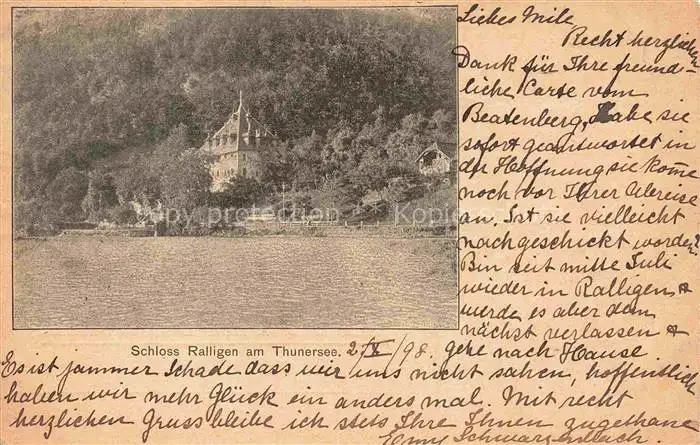 Liebes Mile
Recht herzlichen
Dank für Ihre freund-
liche Carte vom
Beatenberg, Habe sie
sofort geantwortet in
der Hoffnung sie kome
noch vor Ihrer Abreise
an. Ist sie vielleicht
nachgeschickt worden?
Bin seit mitte Juli
wieder in Ralligen &
werde es aber dem
nächst verlassen &
Schloss Ralligen am Thunersee. 2/X/98. gehe nach Hause
Es ist jammer Schade dass wir uns nicht sahen, hoffentlich
haben wir mehr Glück ein anders mal. Mit recht
herzlichen Gruss bleibe ich stets Ihre Ihnen zugethane
Emy Schwarz
copy protection